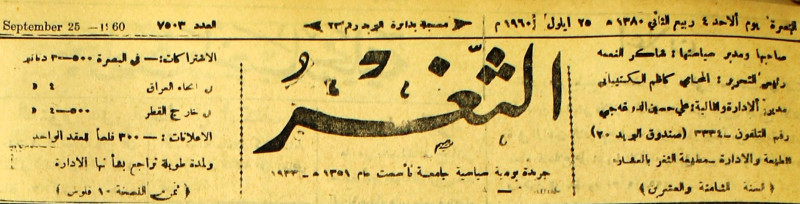 البصرة يوم الاحد ٤ ربيع الثاني ١٣٨٠ هـ ٢٥ ايلول ١٩٦٠ م
مسجلة بدائرة البريد رقم ٢٣
العدد ٧٥٠٣
September 25 - 1960
صاحبها ومدير سياستها : شاكر النعمه
رئيس التحرير : المحامي كاظم
مدير الادارة والمالية : علي حسين
رقم التلفون - ٣٣٣٤ (صندوق البريد ٢٠)
الطبعة والادارة - مطبعة الثغر بالعشار
( السنة الثامنة والعشرين )
الثغر
جريدة يومية سياسية جامعة تأسست عام ١٣٥١ هـ - ١٩٣٣
الاشتراكات : - في البصرة ٥٠٠-٣ دنانير
انحاء العراق ٤ د
خارج القطر ٥٠٠-٤ د
الاعلانات : - ٣٠٠ فلساً للعقد الواحد
ولمدة طويلة تراجع بشأنها الادارة
( ثمن النسخة ١٠ فلوس )